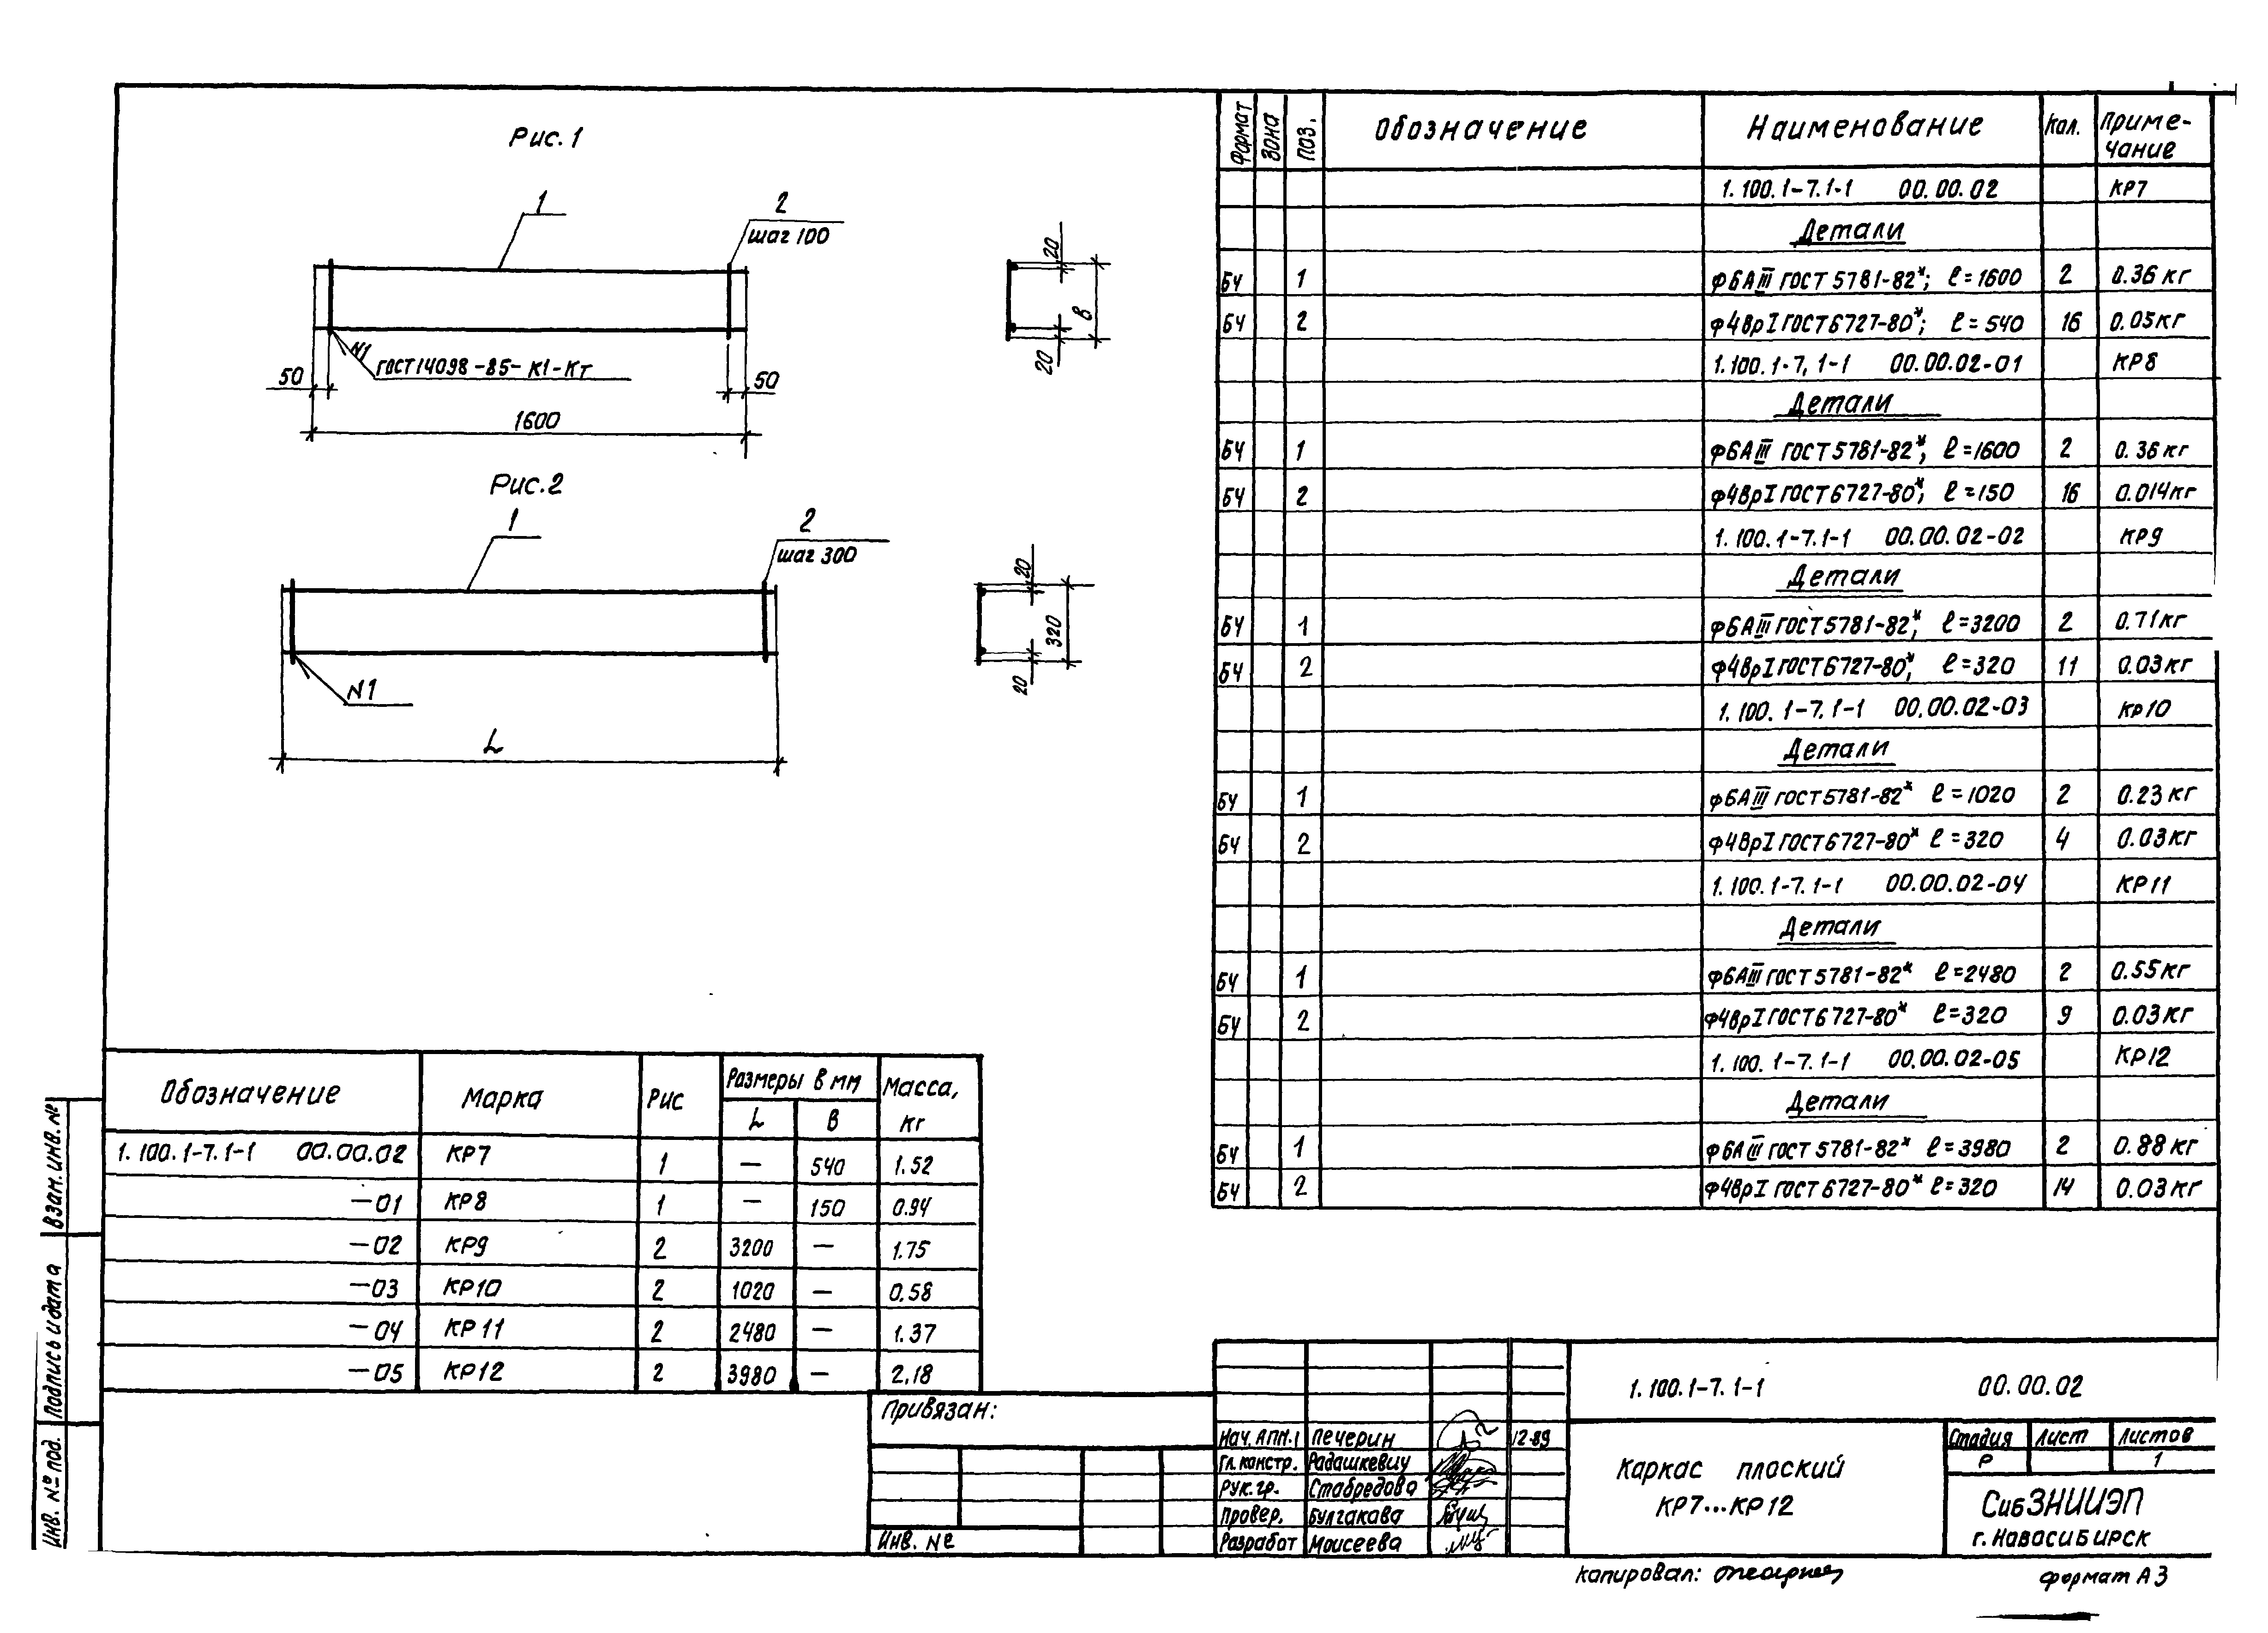 Рис. 1
1
2
шаг 100
N1
ГОСТ 14098-85-К1-Кт
50
50
1600
20
В
20
Рис. 2
1
2
шаг 300
N1
L
20
320
20
Формат Зона Поз. Обозначение Наименование Кол. Приме-
чание
1.100.1-7.1-1 00.00.02 КР7
Детали
БЧ 1 Ф6АIII ГОСТ 5781-82*; ℓ=1600 2 0.36 кг
БЧ 2 Ф4ВрI ГОСТ 6727-80*; ℓ=540 16 0.05 кг
1.100.1-7.1-1 00.00.02-01 КР8
Детали
БЧ 1 Ф6АIII ГОСТ 5781-82*; ℓ=1600 2 0.36 кг
БЧ 2 Ф4ВрI ГОСТ 6727-80*; ℓ=150 16 0.014 кг
1.100.1-7.1-1 00.00.02-02 КР9
Детали
БЧ 1 Ф6АIII ГОСТ 5781-82*; ℓ=3200 2 0.71 кг
БЧ 2 Ф4ВрI ГОСТ 6727-80*; ℓ=320 11 0.03 кг
1.100.1-7.1-1 00.00.02-03 КР10
Детали
БЧ 1 Ф6АIII ГОСТ 5781-82* ℓ=1020 2 0.23 кг
БЧ 2 Ф4ВрI ГОСТ 6727-80* ℓ=320 4 0.03 кг
1.100.1-7.1-1 00.00.02-04 КР11
Детали
БЧ 1 Ф6АIII ГОСТ 5781-82* ℓ=2480 2 0.55 кг
БЧ 2 Ф4ВрI ГОСТ 6727-80* ℓ=320 9 0.03 кг
1.100.1-7.1-1 00.00.02-05 КР12
Детали
БЧ 1 Ф6АIII ГОСТ 5781-82* ℓ=3980 2 0.88 кг
БЧ 2 Ф4ВрI ГОСТ 6727-80* ℓ=320 14 0.03 кг
Обозначение Марка Рис Размеры в мм Масса,
L В кг
1.100.1-7.1-1 00.00.02 КР7 1 — 540 1.52
—01 КР8 1 — 150 0.94
—02 КР9 2 3200 — 1.75
—03 КР10 2 1020 — 0.58
—04 КР11 2 2480 — 1.37
—05 КР12 2 3980 — 2.18
Взам. инв. №
Подпись и дата
Инв. № под.
Привязан:
Инв. №
Нач. АПМ.1 Печерин 12-89
Гл. констр. Радашкевич
Рук. гр. Стабредова
Провер. Булгакава
Разработ Моисеева
1.100.1-7.1-1 00.00.02
Каркас плоский
КР7...КР12
Стадия Лист Листов
Р 1
СибЗНИИЭП
г. Новосибирск
Копировал:
формат А3